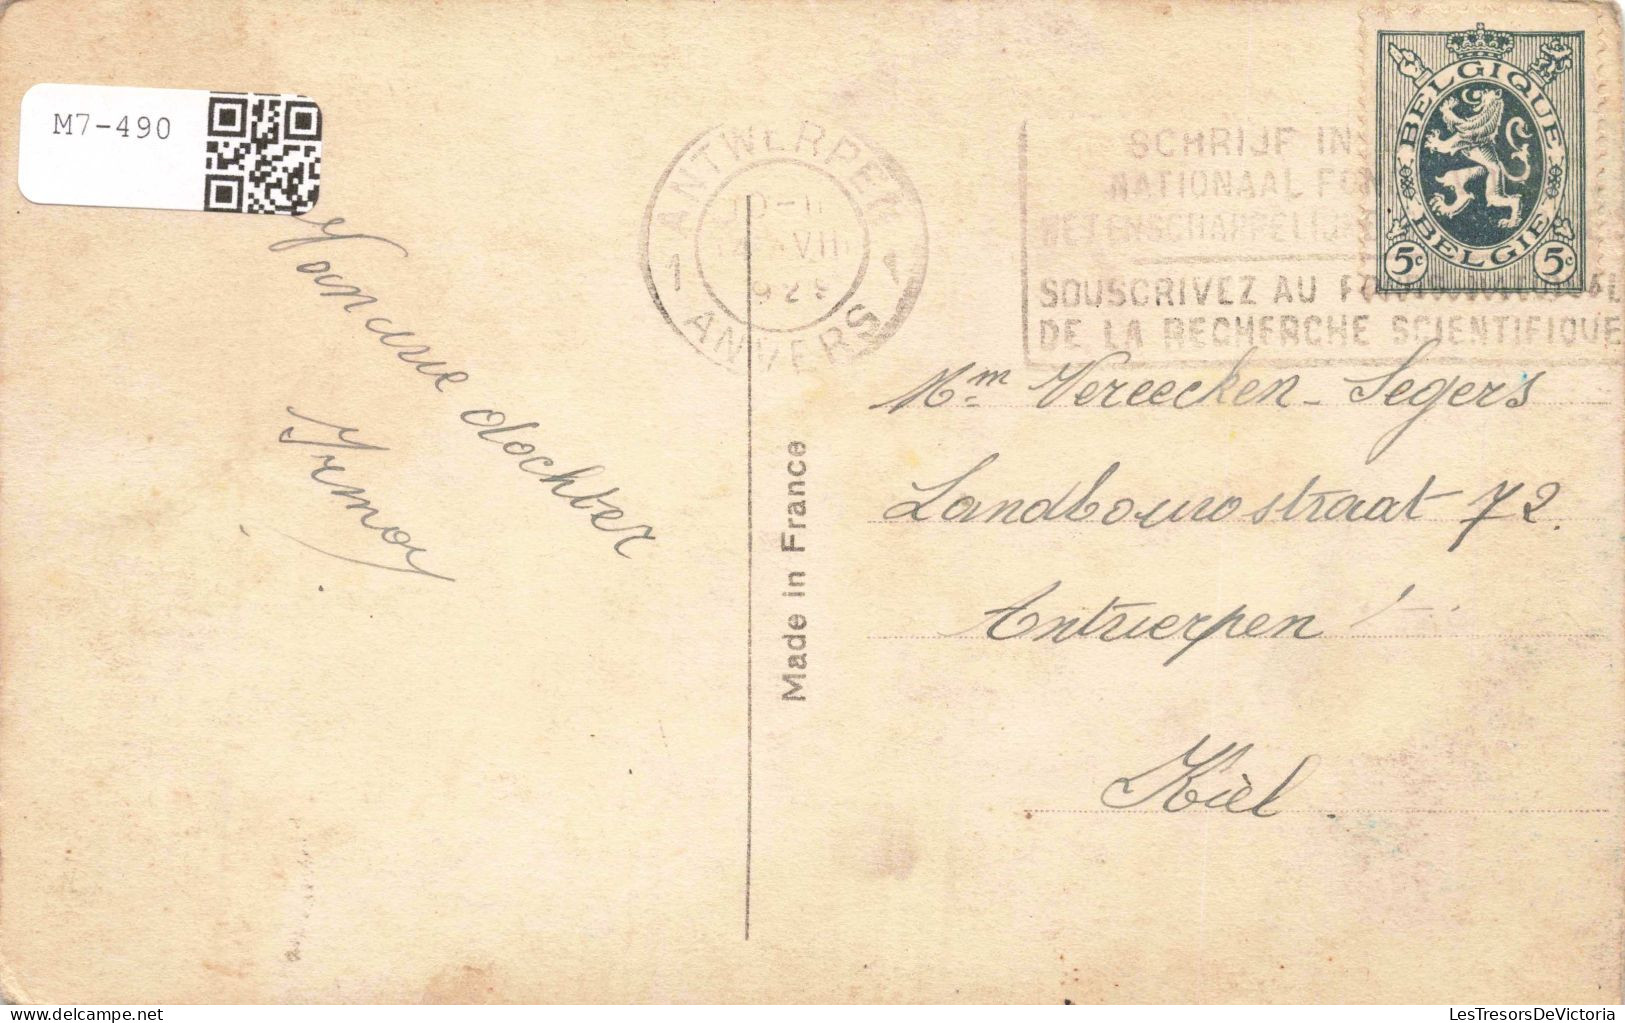 M7-490
Van uwe dochter
Irma
ANTWERPEN
1 1
ANVERS
SCHRIJF IN
NATIONAAL
SOUSCRIVEZ AU
DE LA RECHERCHE SCIENTIFIQUE
BELGIQUE
BELGIE
5c 5c
Made in France
Mm Vereecken - Segers
Landbouwstraat 72.
Antwerpen
Kièl.
LesTresorsDeVictoria